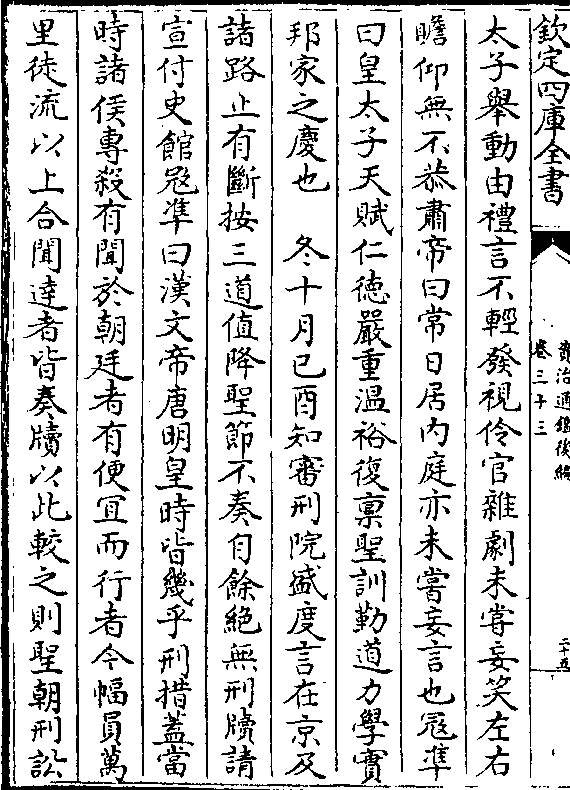 欽定四庫全書
資治通鑑後編
卷三十三
二十五
太子舉動由禮言不輕發視伶官雜劇未嘗妄笑左右
瞻仰無不恭肅帝曰常日居内庭亦未嘗妄言也冦凖
曰皇太子天賦仁德嚴重温裕復稟聖訓勤道力學實
邦家之慶也　冬十月己酉知審刑院盛度言在京及
諸路止有斷按三道值降聖節不奏自餘絶無刑牘請
宣付史館冦凖曰漢文帝唐明皇時皆幾乎刑措蓋當
時諸侯專殺有聞於朝廷者有便宜而行者今幅員萬
里徒流以上合聞達者皆奏牘以此較之則聖朝刑訟